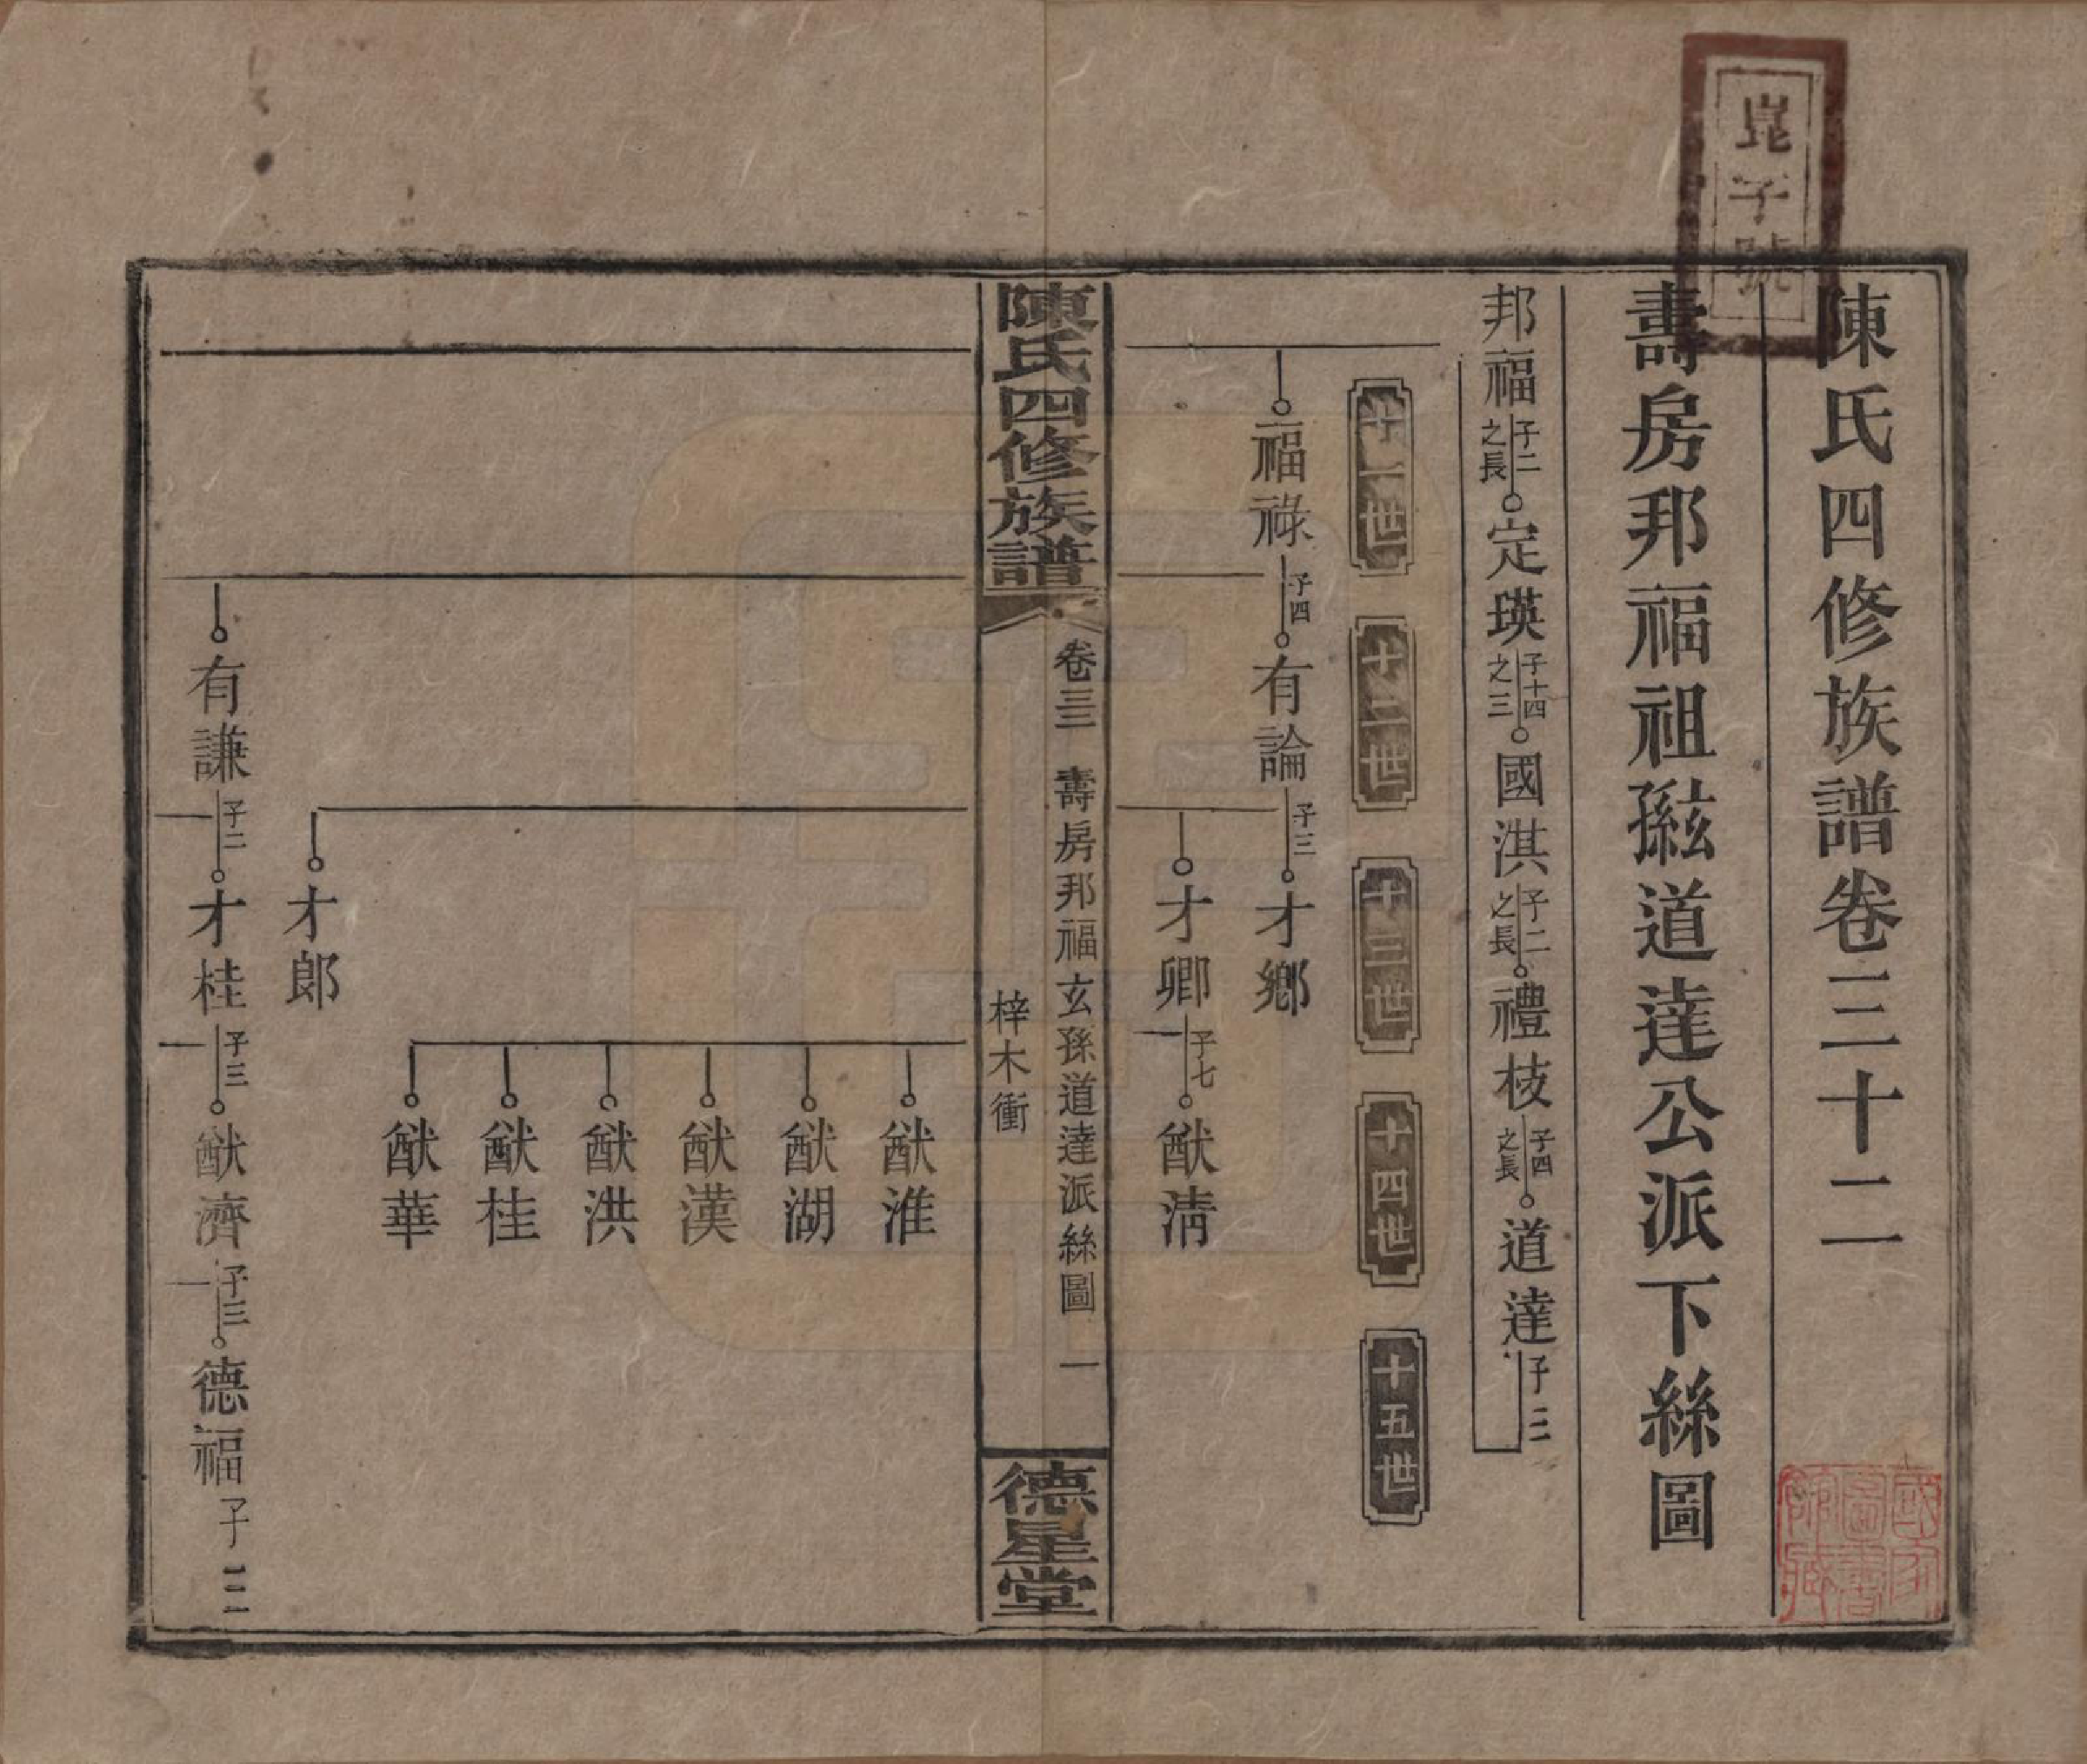 崑子號
陳氏四修族譜卷三十二
壽房邦福祖孫玄道達公派下絲圖
邦福 子二之長 定瑛 子十四之三 國淇 子二之長 禮枝 子四之長 道達 子二
十一世 十二世 十三世 十四世 十五世
福祿 子四 有論 子三 才鄉
才卿 子七 猷清
陳氏四修族譜 卷三二 壽房邦福玄孫道達派絲圖 一
梓木衝
德星堂
猷淮
猷湖
猷漢
猷洪
猷桂
猷華
才郎
有謙 子二 才桂 子三 猷濟 子三 德福 子三
國家圖書館藏